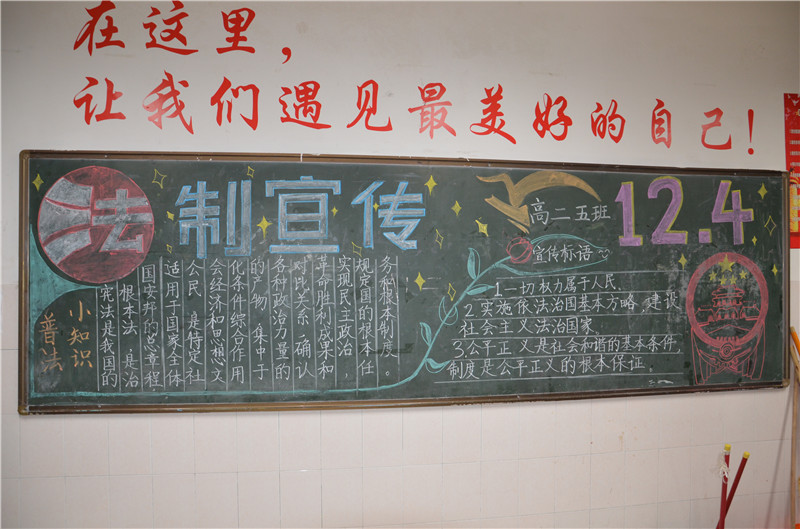 在这里,
让我们遇见最美好的自己!
法制宣传
高二五班
12.4
普法
小知识
宪法是我国的
根本法 是治
国安邦的总章程
适用于国家全体
公民 是特定社
会经济和思想文
化条件综合作用
的产物 集中于
各种政治力量的
对比关系,确认
革命胜利成果和
实现民主政治,
规定国的根本任
务和根本制度。
宣传标语:
1.一切权力属于人民.
2.实施依法治国基本方略,建设
社会主义法治国家
3.公平正义是社会和谐的基本条件,
制度是公平正义的根本保证.